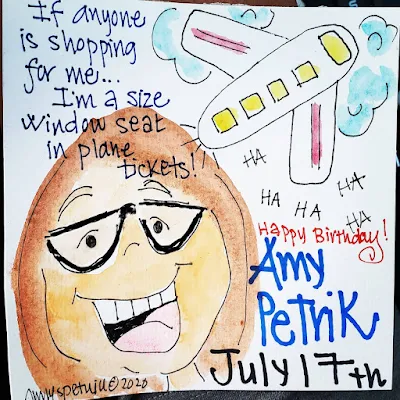 If anyone
is shopping
for me...
I'm a size
window seat
in plane
tickets!
HA
HA
HA
HA
HA
Happy Birthday!
Amy
Petrik
July 17th
©2020